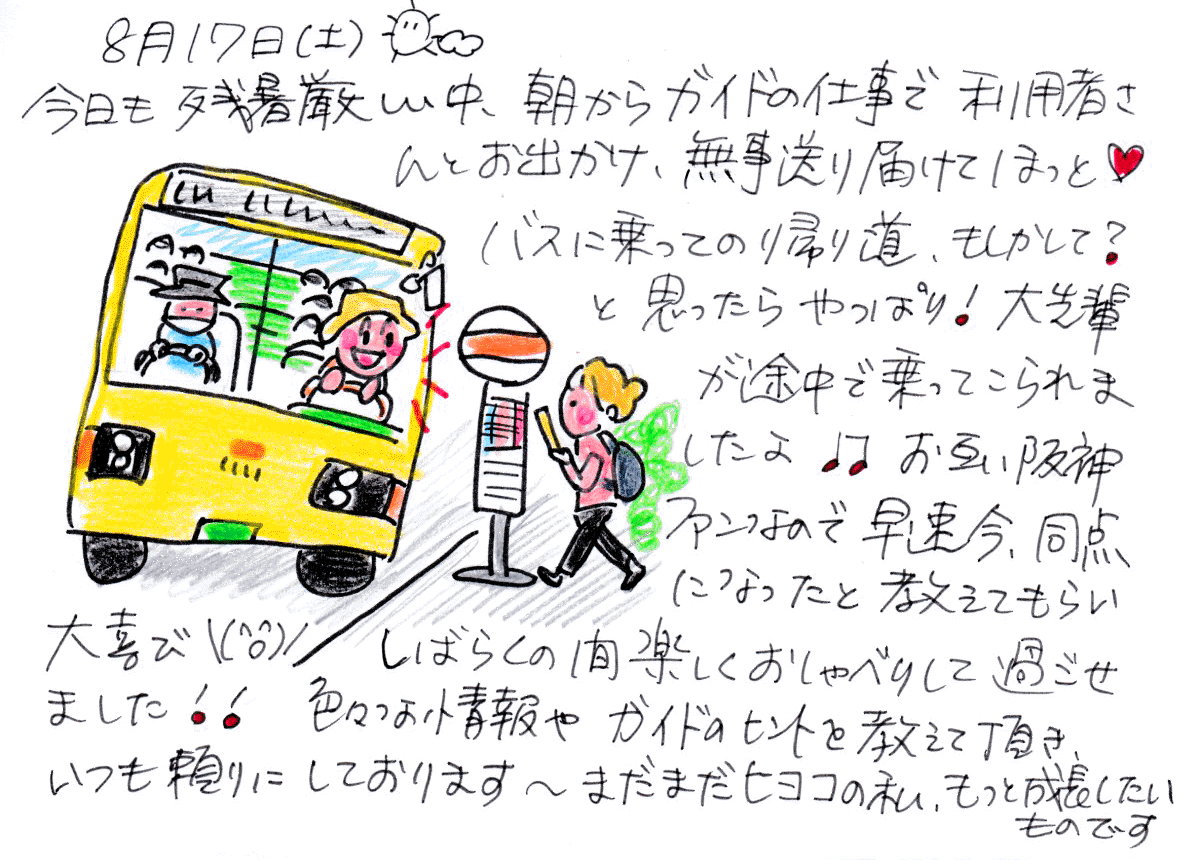 8月17日(土)
今日も残暑厳しい中、朝からガイドの仕事で利用者さ
んとお出かけ、無事送り届けてほっと♥
バスに乗っての帰り道、もしかして?
と思ったらやっぱり!大先輩
が途中で乗ってこられま
したよ♪♫ お互い阪神
ファンなので早速今、同点
になったと教えてもらい
大喜び\(^o^)/ しばらくの間楽しくおしゃべりして過ごせ
ました!! 色々な情報やガイドのヒントを教えて頂き、
いつも頼りにしております〜まだまだヒヨコの私、もっと成長したい
ものです